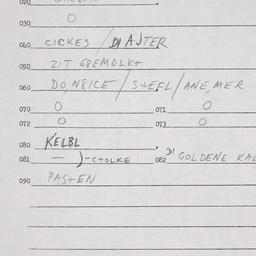 020
030 O
040 CICKES / DI AJTER
050 ZIT GBEMOLKT
060 DO,NBICE / STEFL / ANE,MER
070 O 071 O
072 O 073 O
080 KELBL
081 — )-CTOLKE 082 DI GOLDENE KAL
090 PASTEN